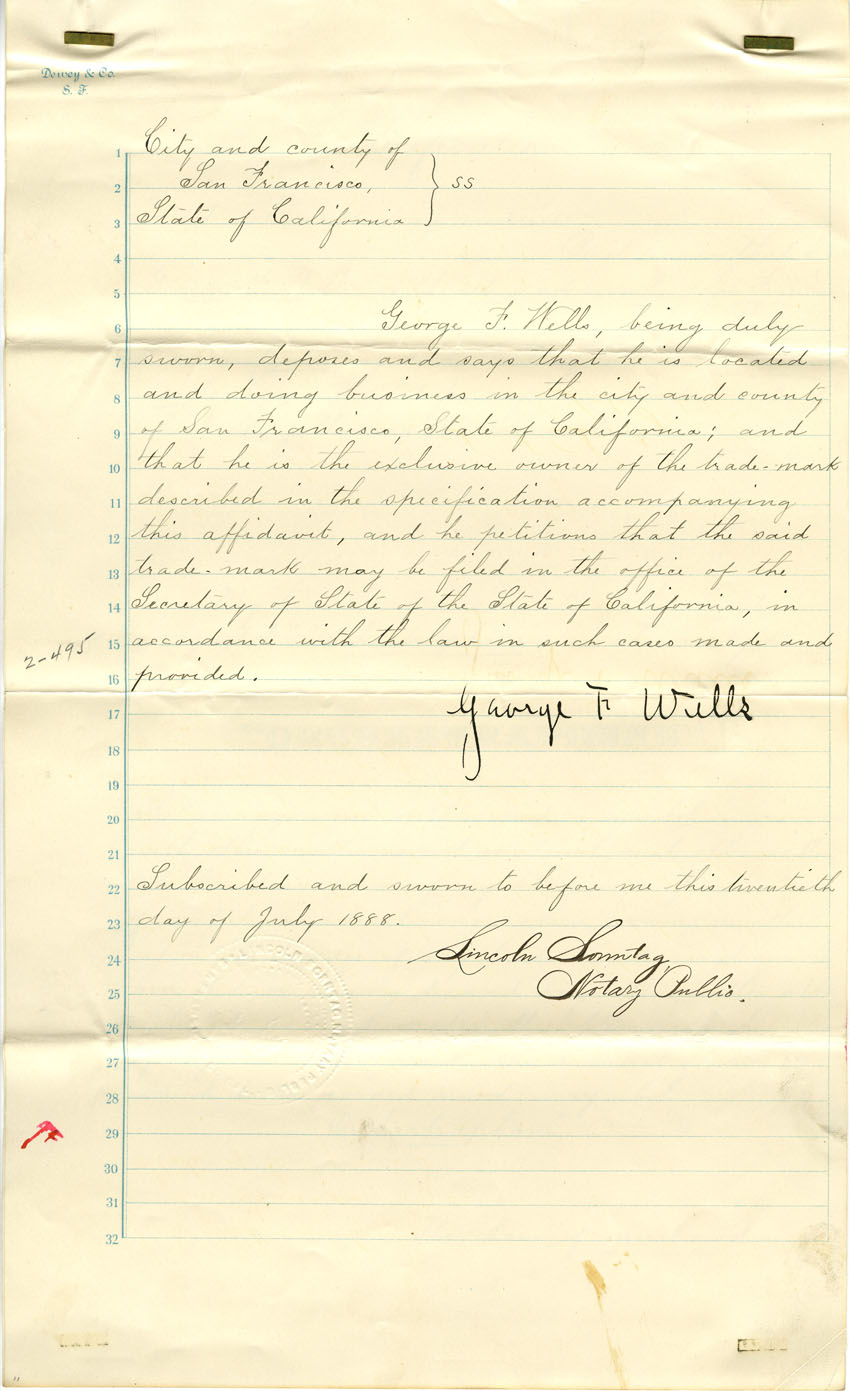 Dewey & Co.
S. F.
1 City and county of
2 San Francisco, } ss
3 State of California
4
5
6 George F. Wells, being duly
7 sworn, deposes and says that he is located
8 and doing business in the city and county
9 of San Francisco, State of California; and
10 that he is the exclusive owner of the trade-mark
11 described in the specification accompanying
12 this affidavit, and he petitions that the said
13 trade-mark may be filed in the office of the
14 Secretary of State of the State of California, in
15 accordance with the law in such cases made and
2-495
16 provided.
17 George F Wells
18
19
20
21
22 Subscribed and sworn to before me this twentieth
23 day of July 1888.
24 Lincoln Sonntag,
25 Notary Public.
26
27
28
29
30
31
32